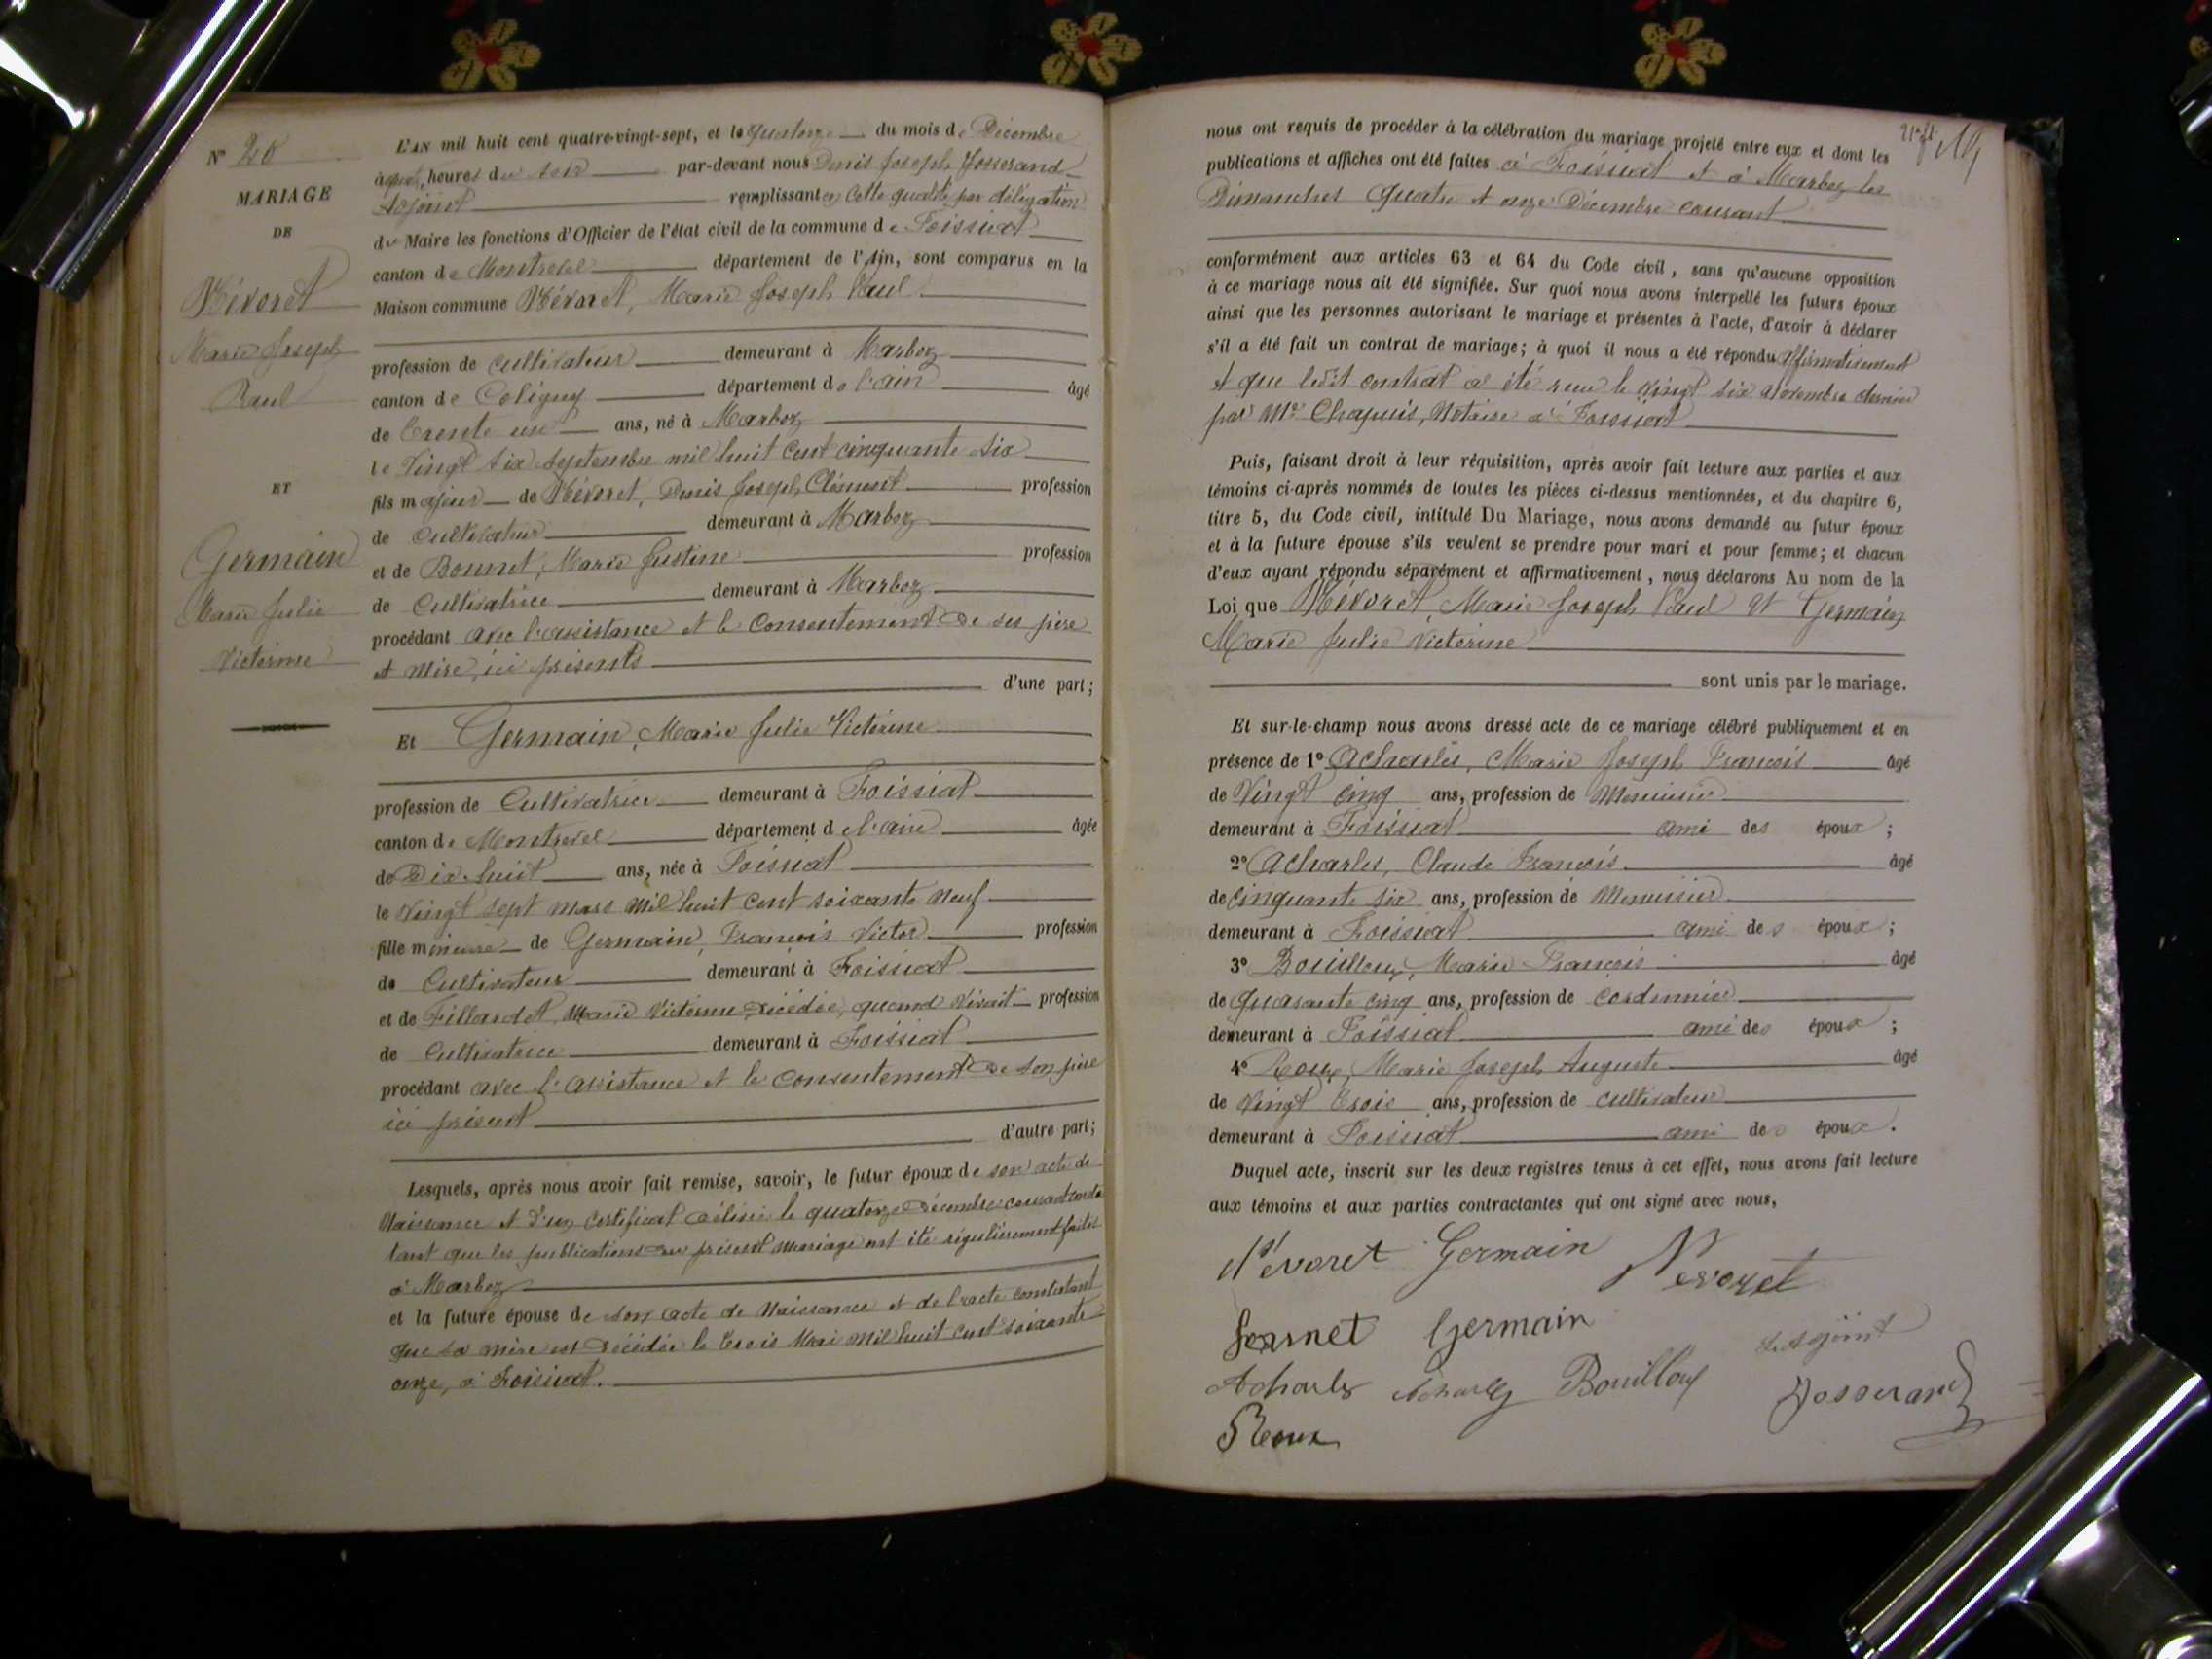 N° 20
MARIAGE
DE
Névoret
Marie Joseph
Paul
ET
Germain
Marie Julie
Victorine
L'AN mil huit cent quatre-vingt-sept, et le quatorze du mois de Décembre
à sept heures du soir par-devant nous Denis Joseph Josserand
Adjoint remplissant en cette qualité par délégation
du Maire les fonctions d'Officier de l'état civil de la commune de Foissiat
canton de Montrevel département de l'Ain, sont comparus en la
Maison commune Névoret, Marie Joseph Paul
profession de cultivateur demeurant à Marboz
canton de Coligny département de l'ain âgé
de trente un ans, né à Marboz
le Vingt six septembre mil huit cent cinquante six
fils majeur de Névoret, Denis Joseph Clément profession
de Cultivateur demeurant à Marboz
et de Bonnet, Marie Justine profession
de Cultivatrice demeurant à Marboz
procédant avec l'assistance et le consentement de ses père
et mère, ici présents
d'une part;
Et Germain, Marie Julie Victorine
profession de Cultivatrice demeurant à Foissiat
canton de Montrevel département de l'ain âgée
de Dix huit ans, née à Foissiat
le Vingt sept mars mil huit cent soixante neuf
fille mineure de Germain, François Victor profession
de Cultivateur demeurant à Foissiat
et de Fillardet, Marie Victorine décédée, quand vivait profession
de Cultivatrice demeurant à Foissiat
procédant avec l'assistance et le consentement de son père
ici présent
d'autre part;
Lesquels, après nous avoir fait remise, savoir, le futur époux de son acte de
Naissance et d'un certificat délivré le quatorze Décembre courant consta
tant que les publications du présent mariage ont été régulièrement faites
à Marboz
et la future épouse de son acte de Naissance et de l'acte constatant
que sa mère est décédée le trois Mai mil huit cent soixante
onze, à Foissiat.
nous ont requis de procéder à la célébration du mariage projeté entre eux et dont les
publications et affiches ont été faites à Foissiat et à Marboz les
Dimanches quatre et onze Décembre courant
conformément aux articles 63 et 64 du Code civil, sans qu'aucune opposition
à ce mariage nous ait été signifiée. Sur quoi nous avons interpellé les futurs époux
ainsi que les personnes autorisant le mariage et présentes à l'acte, d'avoir à déclarer
s'il a été fait un contrat de mariage; à quoi il nous a été répondu affirmativement
et que ledit contrat a été reçu le vingt six Novembre dernier
par Me Chapuis, Notaire à Foissiat
Puis, faisant droit à leur réquisition, après avoir fait lecture aux parties et aux
témoins ci-après nommés de toutes les pièces ci-dessus mentionnées, et du chapitre 6,
titre 5, du Code civil, intitulé Du Mariage, nous avons demandé au futur époux
et à la future épouse s'ils veulent se prendre pour mari et pour femme; et chacun
d'eux ayant répondu séparément et affirmativement, nous déclarons Au nom de la
Loi que Névoret, Marie Joseph Paul et Germain,
Marie Julie Victorine
sont unis par le mariage.
Et sur-le-champ nous avons dressé acte de ce mariage célébré publiquement et en
présence de 1° Acharles, Marie Joseph François âgé
de Vingt cinq ans, profession de Menuisier
demeurant à Foissiat ami des époux;
2° Acharles, Claude François âgé
de Cinquante six ans, profession de Menuisier
demeurant à Foissiat ami des époux;
3° Bouilloux, Marie François âgé
de quarante cinq ans, profession de cordonnier
demeurant à Foissiat ami des époux;
4° Roux, Marie Joseph Auguste âgé
de Vingt trois ans, profession de cultivateur
demeurant à Foissiat ami des époux.
Duquel acte, inscrit sur les deux registres tenus à cet effet, nous avons fait lecture
aux témoins et aux parties contractantes qui ont signé avec nous,
Névoret Germain Nevoret
Germain
L'Adjoint
Acharles Acharles Bouilloux Josserand
Roux